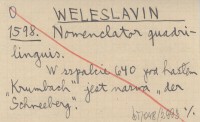 O WELESLAVIN
1598. Nomenclator quadri-
linguis.
W szpalcie 640 pod hasłem
"Krumbach" jest nazwa "der
Schneeberg".